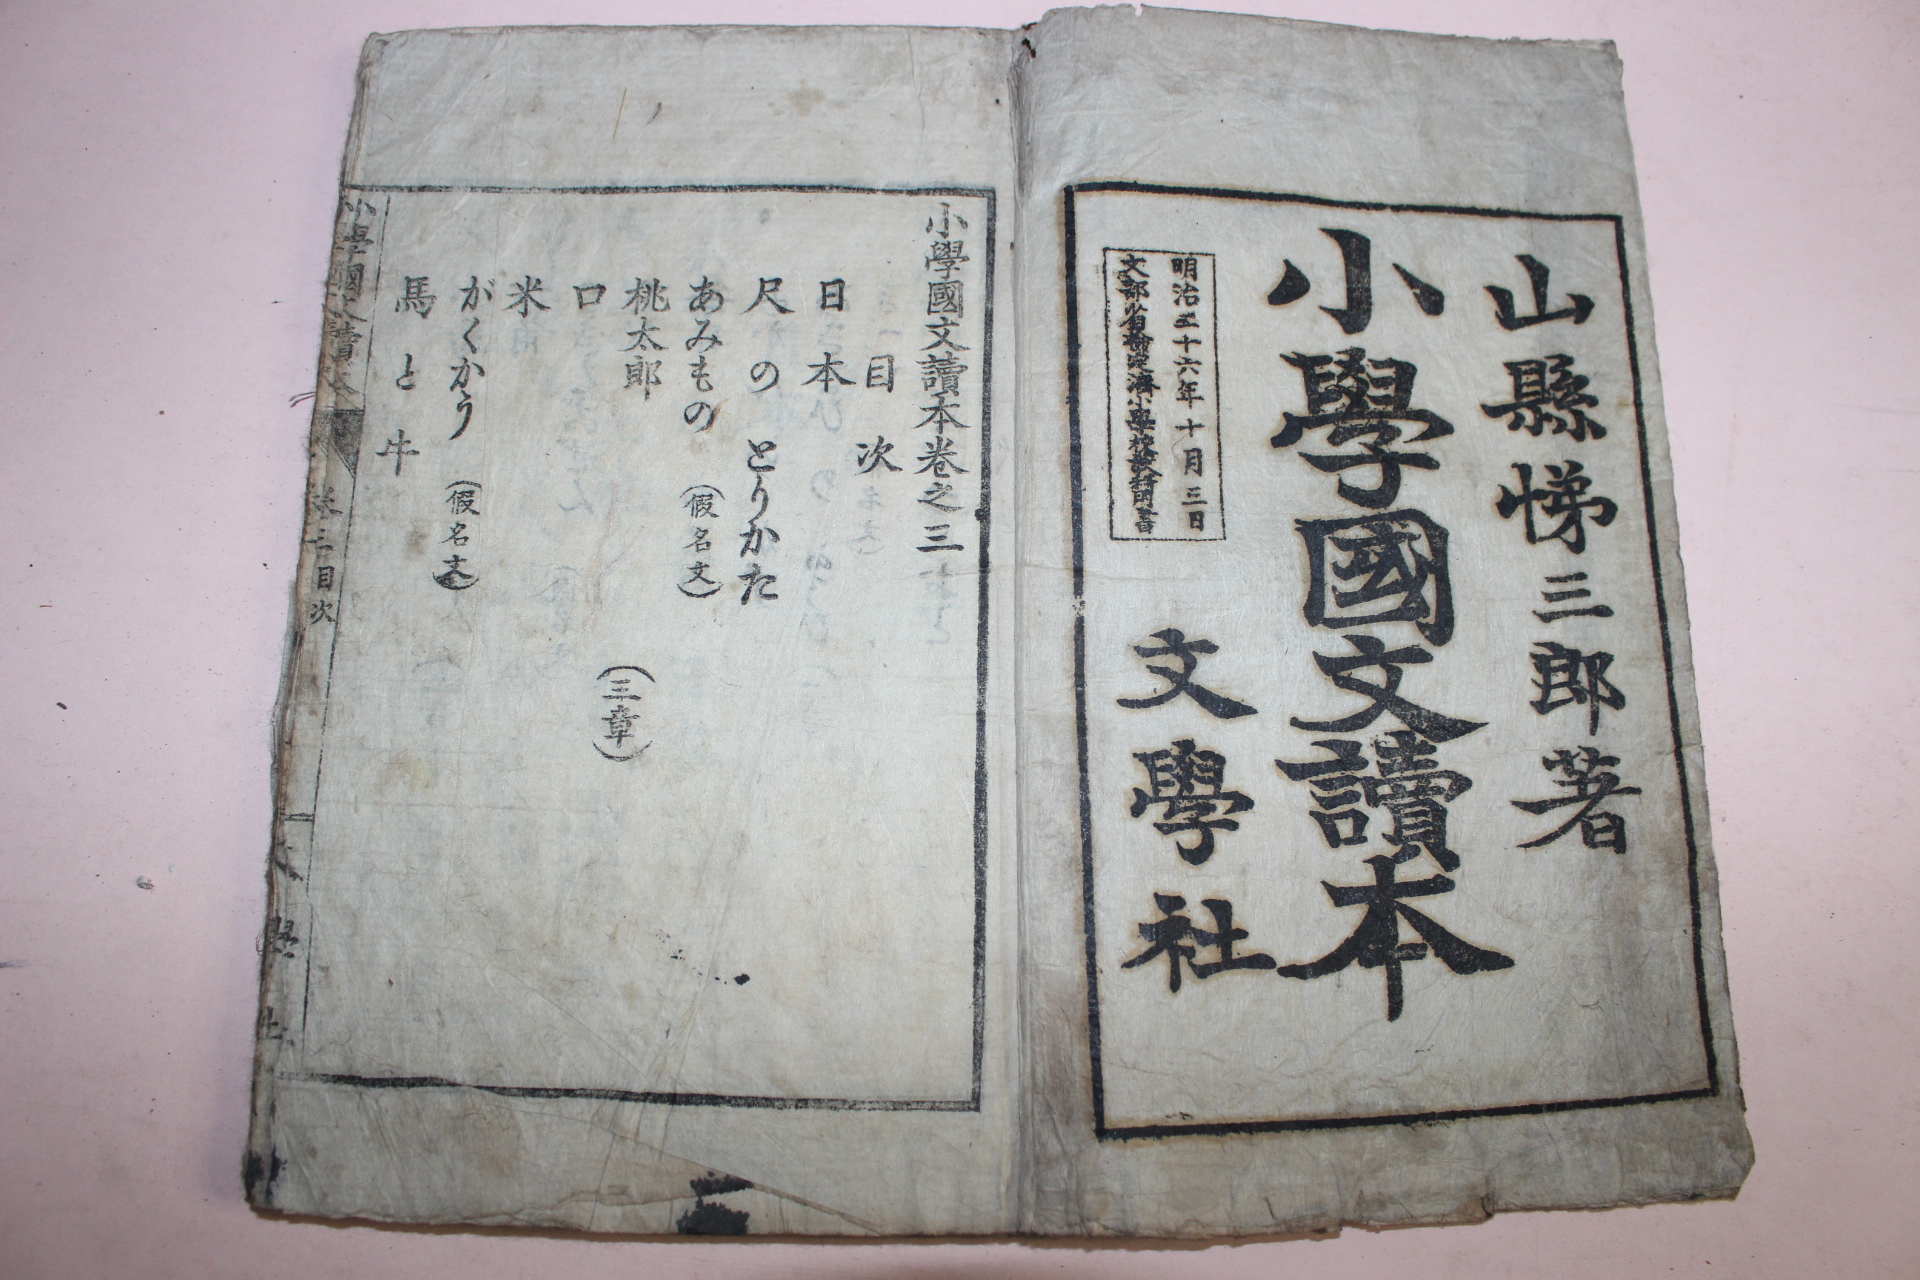 山縣悌三郎著
小學國文讀本
明治二十六年十月三日
文部省檢定濟小學校敎科用書
文學社
小學國文讀本卷之三
目次
日本
尺のとりかた
あみもの (假名文)
桃太郎 (三章)
口
米
がくかう (假名文)
馬と牛
小學國文讀本 卷三目次